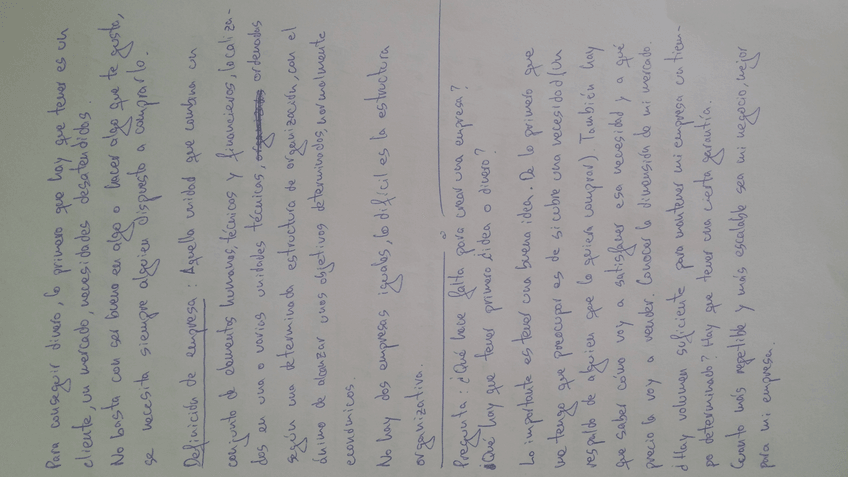 Para conseguir dinero, lo primero que hay que tener es un
cliente, un mercado, necesidades desatendidos.
No basta con ser bueno en algo o hacer algo que te gusta,
se necesita siempre alguien dispuesto a comprarlo.
Definición de empresa: Aquella unidad que combina un
conjunto de elementos humanos, técnicos y financieros, localiza-
dos en una o varias unidades técnicas, ordenados
según una determinada estructura de organización, con el
ánimo de alcanzar unos objetivos determinados, normalmente
económicos.
No hay dos empresas iguales, lo difícil es la estructura
organizativa.
Pregunta: ¿Qué hace falta para crear una empresa?
¿Qué hay que tener primero ¿idea o dinero?
Lo importante es tener una buena idea. De lo primero que
me tengo que preocupar es de si cubre una necesidad (un
respaldo de alguien que lo quiera comprar). También hay
que saber cómo voy a satisfacer esa necesidad y a qué
precio lo voy a vender. Conocer la dimensión de mi mercado.
¿Hay volumen suficiente para mantener mi empresa en un tiem-
po determinado? Hay que tener una cierta garantía.
Cuanto más repetible y más escalable sea mi negocio, mejor
para mi empresa.